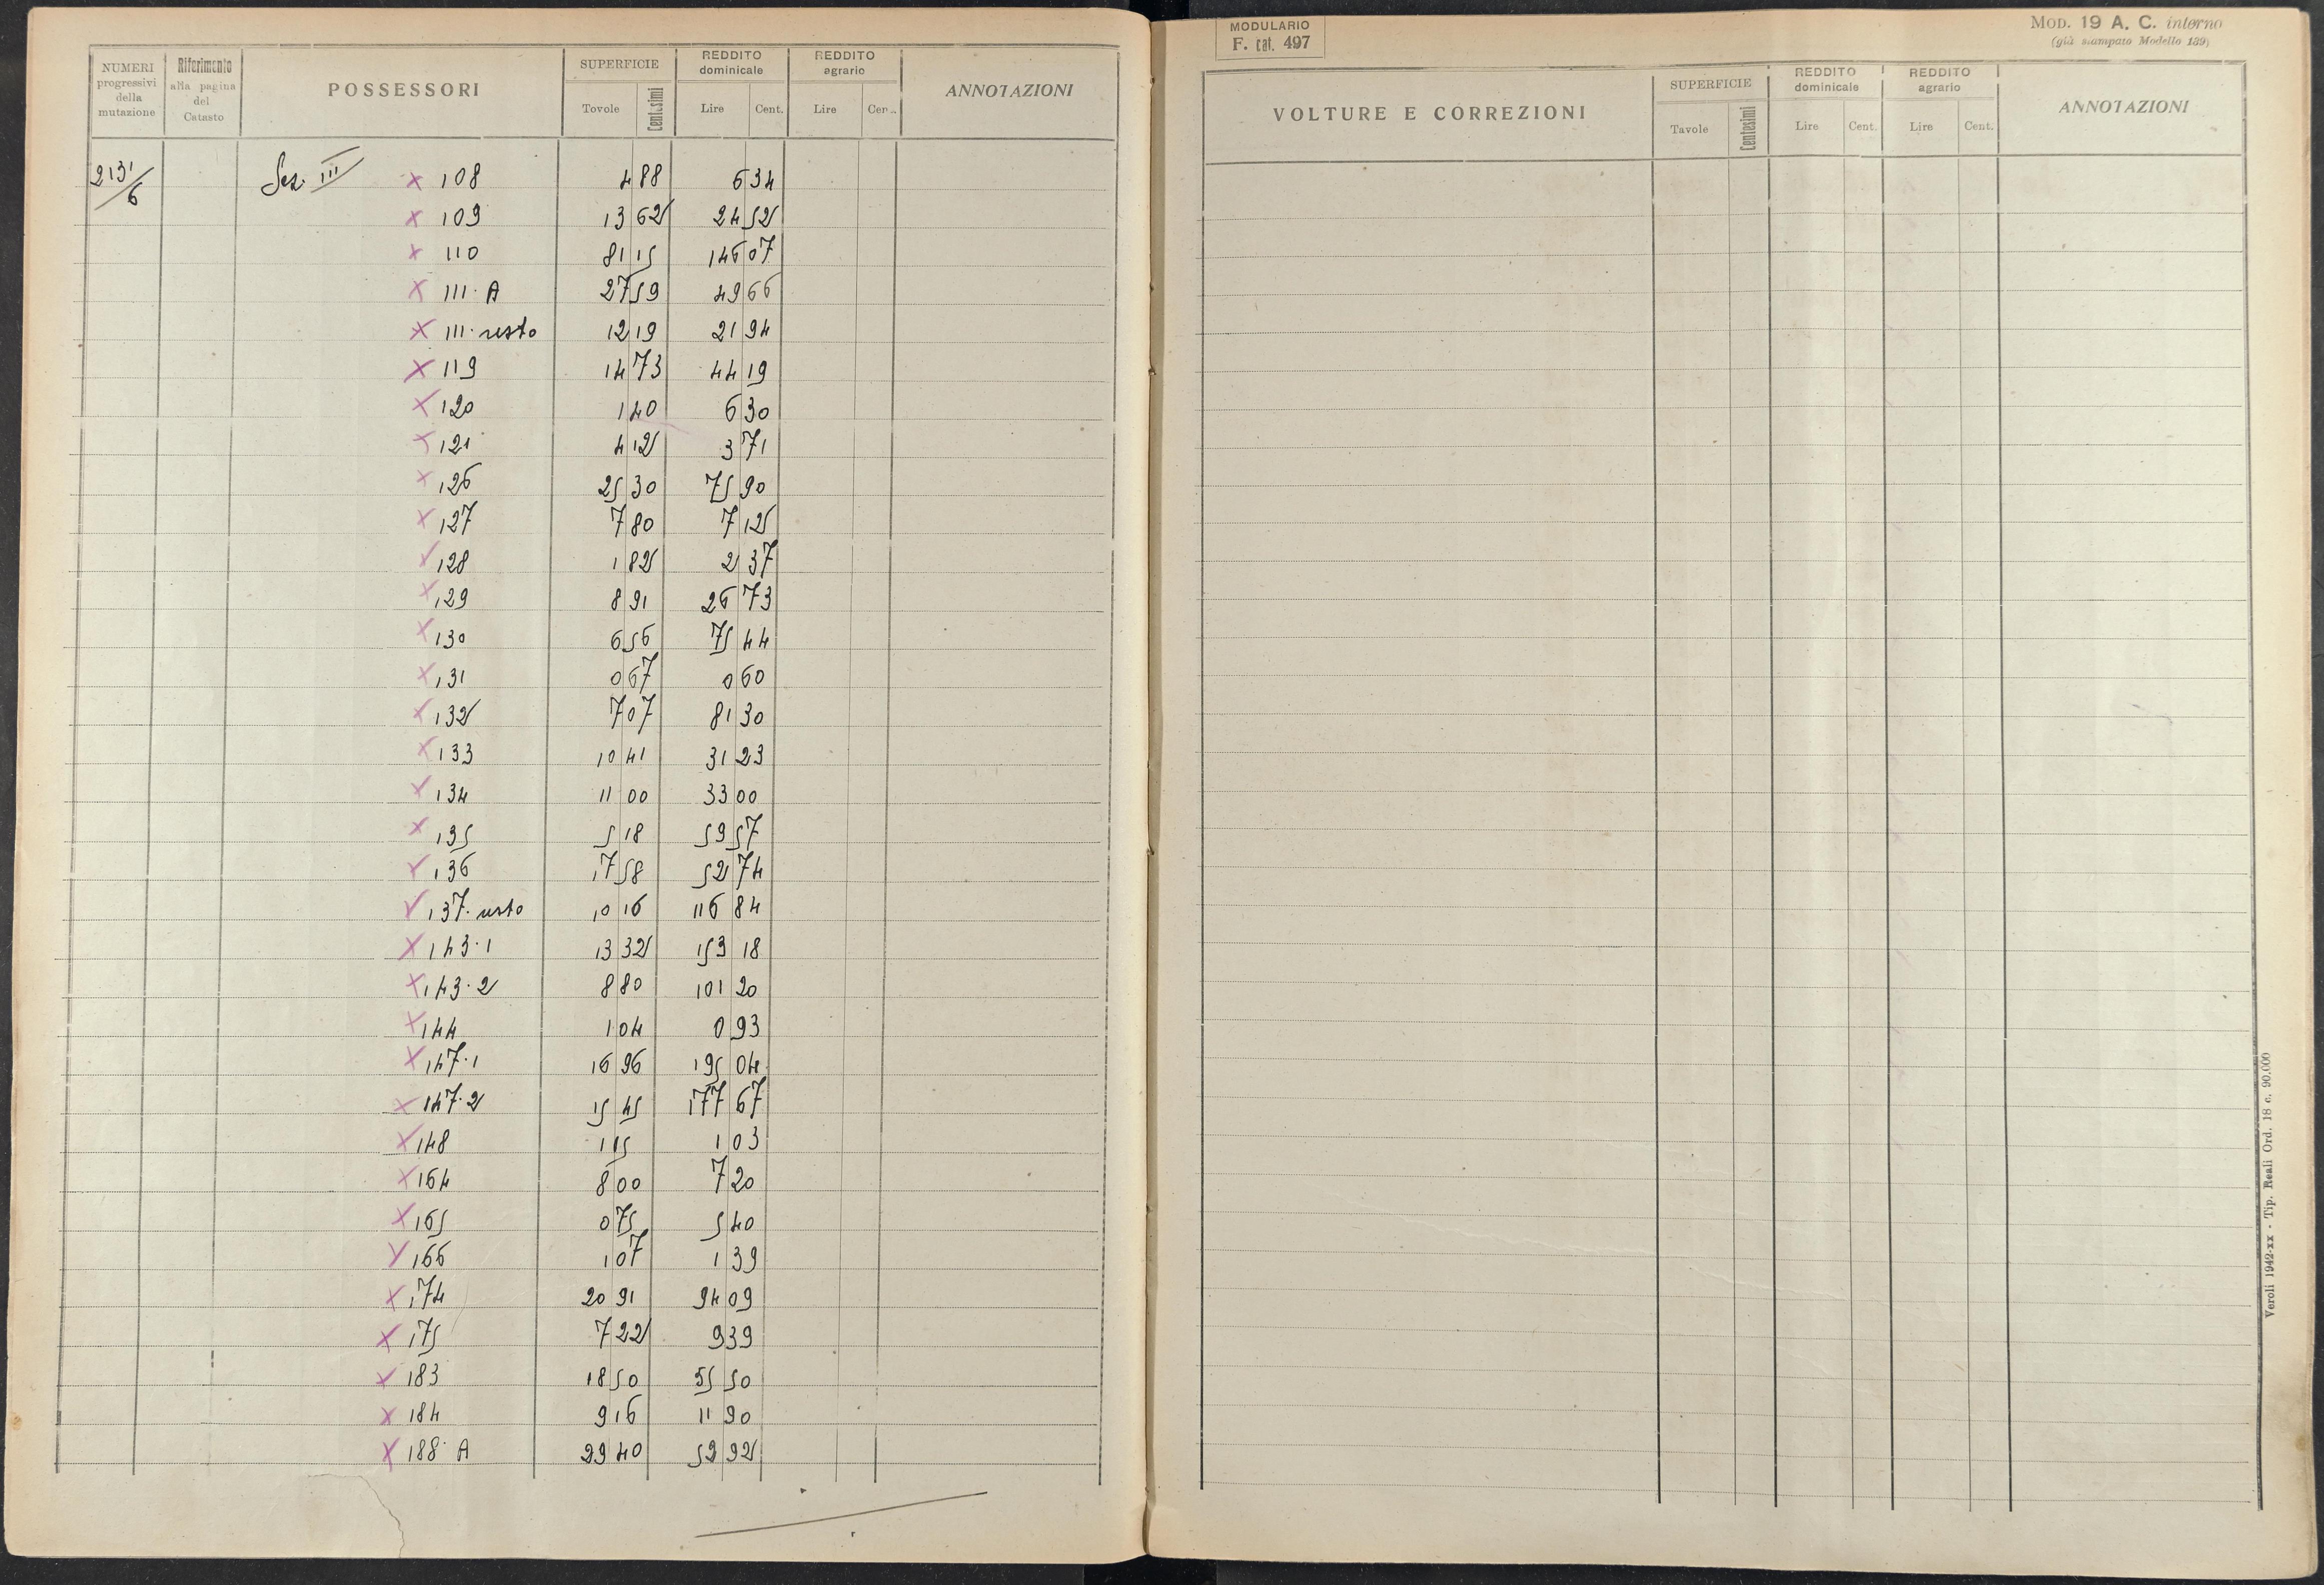 NUMERI progressivi della mutazione | Riferimento alla pagina del Catasto | POSSESSORI | SUPERFICIE Tovole Centesimi | REDDITO dominicale Lire Cent. | REDDITO agrario Lire Cen.. | ANNOTAZIONI
213 1/6 Sez. III x 108 4 88 6 34
x 109 13 62 24 52
x 110 81 15 146 07
x 111 · A 27 59 49 66
x 111 · resto 12 19 21 94
x 119 14 73 44 19
x 120 1 40 6 30
x 121 4 12 3 71
x 126 25 30 75 90
x 127 7 80 7 12
x 128 1 82 2 37
x 129 8 91 26 73
x 130 6 56 75 44
x 131 0 67 0 60
x 132 7 07 81 30
x 133 10 41 31 23
x 134 11 00 33 00
x 135 5 18 59 57
x 136 17 58 52 74
x 137 · resto 10 16 116 84
x 143 · 1 13 32 153 18
x 143 · 2 8 80 101 20
x 144 1 04 0 93
x 147 · 1 16 96 195 04
x 147 · 2 15 45 177 67
x 148 1 15 1 03
x 164 8 00 7 20
x 165 0 75 5 40
x 166 1 07 1 39
x 174 20 91 94 09
x 175 7 22 9 39
x 183 18 50 55 50
x 184 9 16 11 90
x 188 · A 29 40 52 92
MODULARIO
F. cat. 497
MOD. 19 A. C. interno
(già stampato Modello 139)
VOLTURE E CORREZIONI | SUPERFICIE Tavole Centesimi | REDDITO dominicale Lire Cent. | REDDITO agrario Lire Cent. | ANNOTAZIONI
Veroli 1942-xx - Tip. Reali Ord. 18 c. 90.000